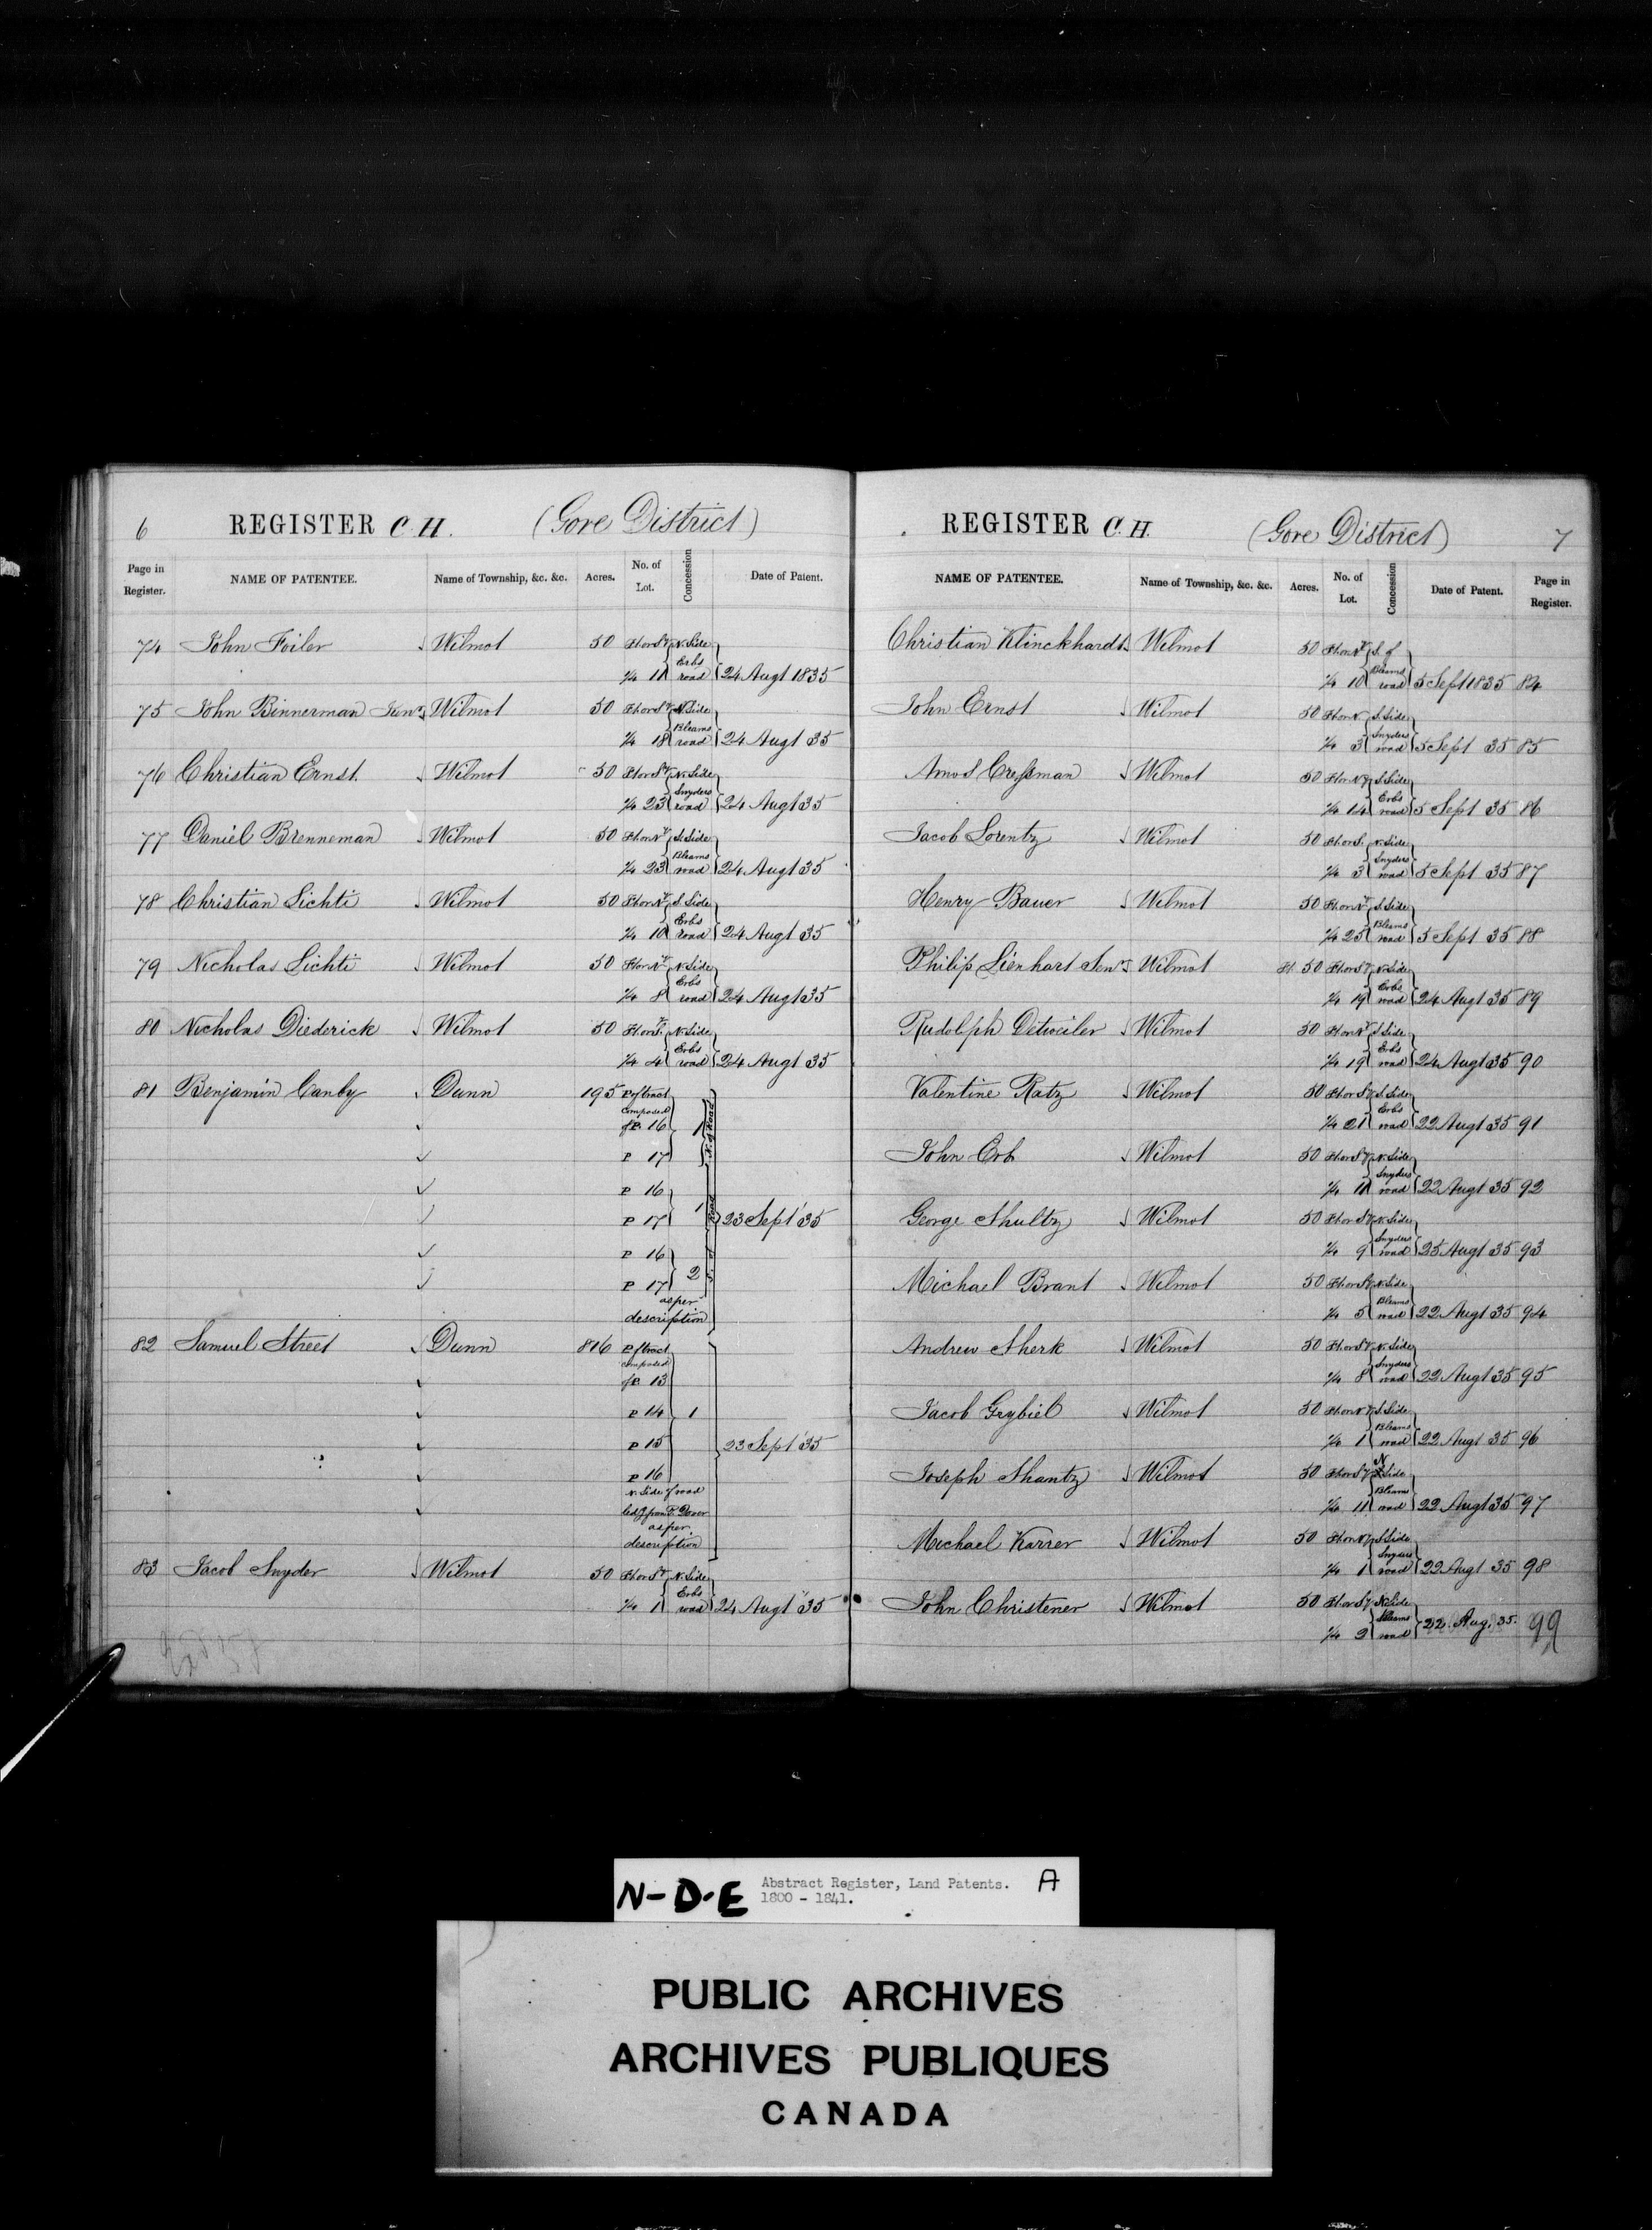 6 REGISTER C. H. (Gore District)
Page in Register. NAME OF PATENTEE. Name of Township, &c. &c. Acres. No. of Lot. Concession Date of Patent.
74 John Foiler Wilmot 50 N. Side
¼ 11 Erbs road 24 Augt 1835
75 John Binnerman Wilmot 50 N. Side
¼ 18 Bleams road 24 Augt 35
76 Christian Ernst Wilmot 50 N. Side
¼ 23 Snyders road 24 Augt 35
77 Daniel Brenneman Wilmot 50 S. Side
¼ 23 Bleams road 24 Augt 35
78 Christian Lichti Wilmot 50 S. Side
¼ 10 Erbs road 24 Augt 35
79 Nicholas Lichti Wilmot 50 N. Side
¼ 8 Erbs road 24 Augt 35
80 Nicholas Diederick Wilmot 50 N. Side
¼ 4 Erbs road 24 Augt 35
81 Benjamin Canby Dunn 195 P of tract
composed
of P. 16 1
P 17
P 16
P 17 1 23 Sept 35
P 16
P 17 2
as per
description
82 Samuel Street Dunn 816 P of tract
composed
of P. 13
P 14 1
P 15 23 Sept 35
P 16
N. Side of road
from P. Dover
as per
description
83 Jacob Snyder Wilmot 50 N. Side
¼ 1 Erbs road 24 Augt 35
REGISTER C. H. (Gore District) 7
NAME OF PATENTEE. Name of Township, &c. &c. Acres. No. of Lot. Concession Date of Patent. Page in Register.
Christian Klinckhardt Wilmot 50 S. of
¼ 10 Bleams road 5 Sept 1835 84
John Ernst Wilmot 50 S. Side
¼ 3 Snyders road 5 Sept 35 85
Amos Cressman Wilmot 50 S. Side
¼ 14 Erbs road 5 Sept 35 86
Jacob Lorentz Wilmot 50 N. Side
¼ 3 Snyders road 5 Sept 35 87
Henry Bauer Wilmot 50 S. Side
¼ 25 Bleams road 5 Sept 35 88
Philip Lienhart Senr Wilmot 50 N. Side
¼ 19 Erbs road 24 Augt 35 89
Rudolph Detweiler Wilmot 50 S. Side
¼ 19 Erbs road 24 Augt 35 90
Valentine Ratz Wilmot 50 S. Side
¼ 21 Erbs road 22 Augt 35 91
John Erb Wilmot 50 N. Side
¼ 11 Snyders road 22 Augt 35 92
George Shultz Wilmot 50 N. Side
¼ 9 Snyders road 25 Augt 35 93
Michael Brant Wilmot 50 N. Side
¼ 5 Bleams road 22 Augt 35 94
Andrew Sherk Wilmot 50 N. Side
¼ 8 Snyders road 22 Augt 35 95
Jacob Grybiel Wilmot 50 S. Side
¼ 1 Bleams road 22 Augt 35 96
Joseph Shantz Wilmot 50 N Side
¼ 11 Bleams road 22 Augt 35 97
Michael Karrer Wilmot 50 S. Side
¼ 1 Snyders road 22 Augt 35 98
John Christener Wilmot 50 N. Side
¼ 2 Bleams road 22 Aug. 35. 99
N-D-E Abstract Register, Land Patents. A
1800 - 1841.
PUBLIC ARCHIVES
ARCHIVES PUBLIQUES
CANADA